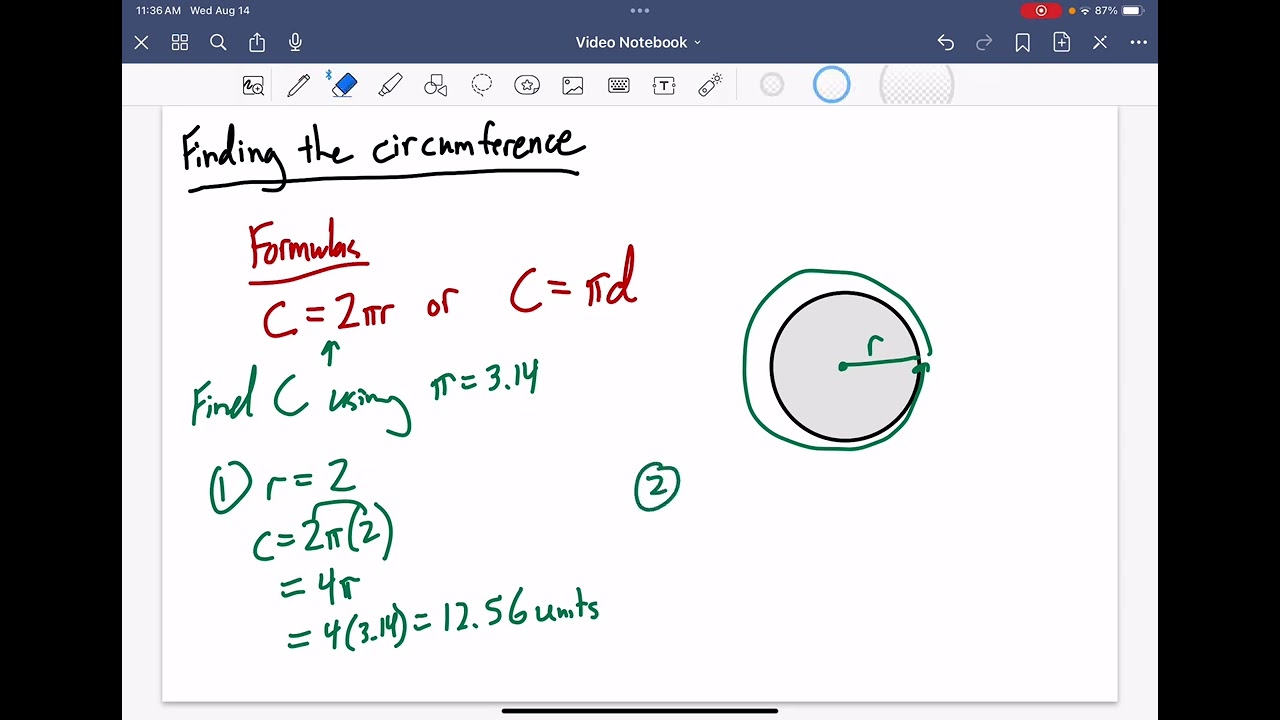 11:36 AM Wed Aug 14
87%
Video Notebook
T
Finding the circumference
Formulas
C = 2πr or C = πd
Find C using π = 3.14
r
① r = 2
C = 2π(2)
= 4π
= 4(3.14) = 12.56 units
②